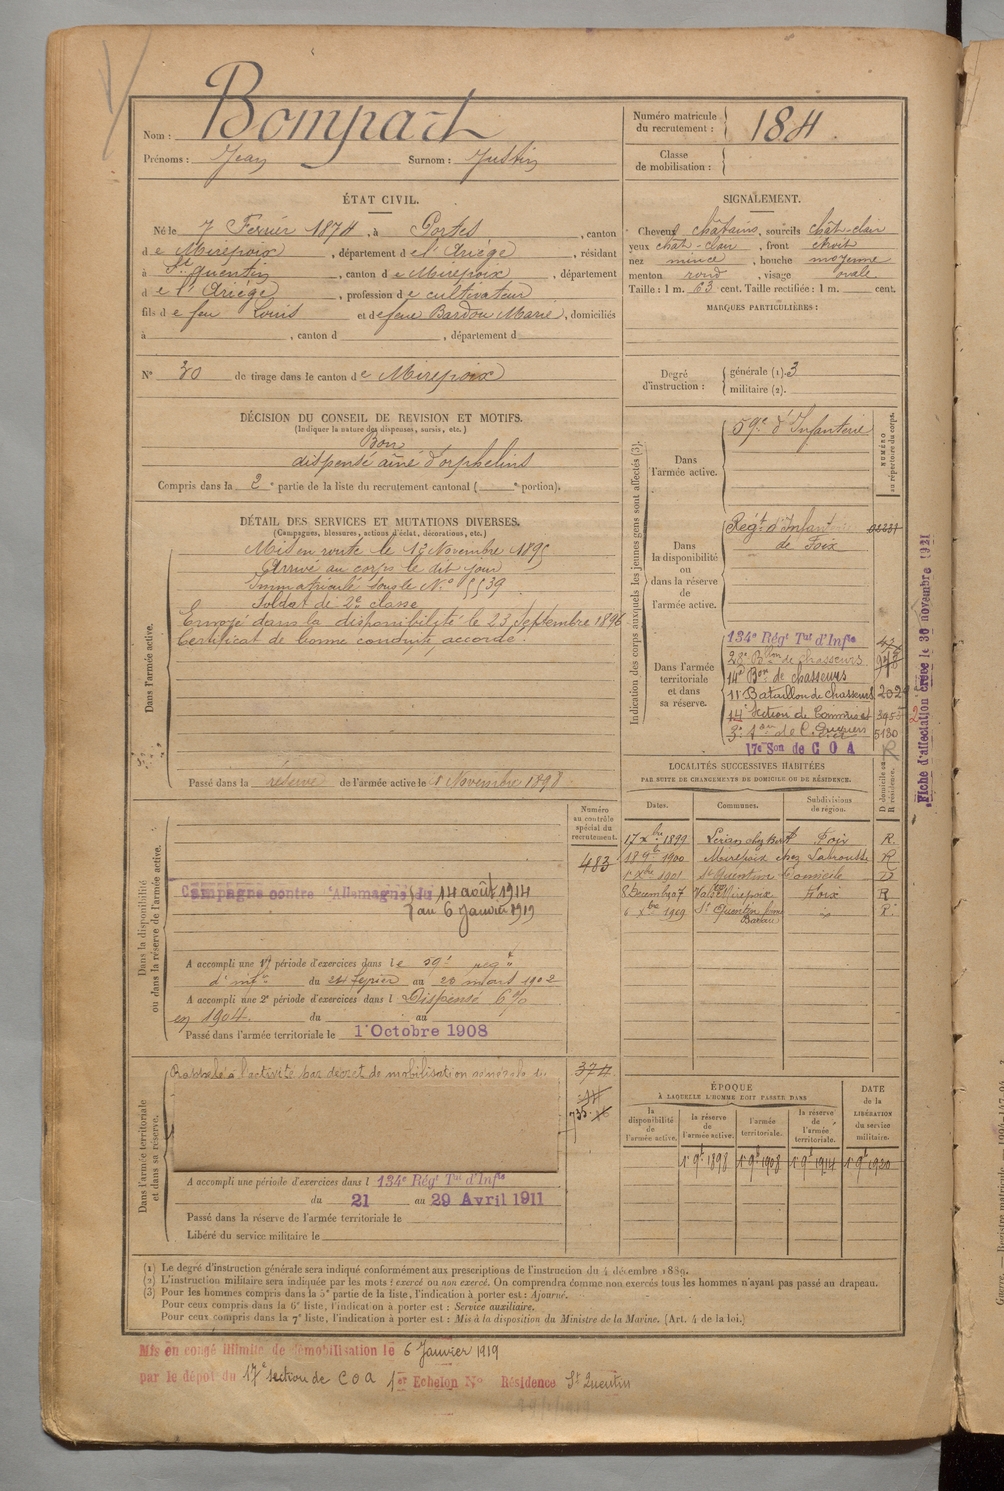 Nom : Bompart
Prénoms : Jean Surnom : Justin
Numéro matricule du recrutement : 184
Classe de mobilisation :
ÉTAT CIVIL.
Né le 7 Février 1874, à Portes, canton
de Mirepoix, département de l'Ariège, résidant
à St Quentin, canton de Mirepoix, département
de l'Ariège, profession de cultivateur
fils de feu Louis et de feue Bardou Marie, domiciliés
à , canton d , département d
N° 30 de tirage dans le canton de Mirepoix
SIGNALEMENT.
Cheveux châtains, sourcils chât-clair
yeux chât-clair, front étroit
nez mince, bouche moyenne
menton rond, visage ovale
Taille : 1 m. 63 cent. Taille rectifiée : 1 m. cent.
MARQUES PARTICULIÈRES :
Degré d'instruction : générale (1). 3
militaire (2).
DÉCISION DU CONSEIL DE REVISION ET MOTIFS.
(Indiquer la nature des dispenses, sursis, etc.)
Bon
dispensé aîné d'orphelins
Compris dans la 2e partie de la liste du recrutement cantonal ( e portion).
DÉTAIL DES SERVICES ET MUTATIONS DIVERSES.
(Campagnes, blessures, actions d'éclat, décorations, etc.)
Dans l'armée active.
Mis en route le 13 Novembre 1895
Arrivé au corps le dit jour
Immatriculé sous le N° 5539
Soldat de 2e classe
Envoyé dans la disponibilité le 23 Septembre 1896
Certificat de bonne conduite accordé.
Passé dans la réserve de l'armée active le 1 Novembre 1898
Indication des corps auxquels les jeunes gens sont affectés (3).
NUMÉRO au répertoire du corps.
Dans l'armée active.
59e d'Infanterie
Dans la disponibilité ou dans la réserve de l'armée active.
Régt d'Infanterie
de Foix
Dans l'armée territoriale et dans sa réserve.
134e Régt Tal d'Infie
28e Bllon de chasseurs
14e Bon de chasseurs
11e Bataillon de chasseurs 2029
14 Section de Commis et
5130
17e Son de C O A
Fiche d'affectation créée le 30 novembre 1921
LOCALITÉS SUCCESSIVES HABITÉES
PAR SUITE DE CHANGEMENTS DE DOMICILE OU DE RÉSIDENCE.
Dates. Communes. Subdivisions de région. D domicile ou R résidence.
17 Xbre 1899 Léran Foix R
18 9b 1900 Mirepoix chez Labrousse R
1901 St Quentin Domicile D
Mirepoix Foix R
6 Xbre 1909 St Quentin R
Dans la disponibilité ou dans la réserve de l'armée active.
Numéro au contrôle spécial du recrutement.
483
Campagne contre l'Allemagne du 14 août 1914
au 6 Janvier 1919
A accompli une 1re période d'exercices dans le 59e régt
d'infie du 24 février au 20 mars 1902
A accompli une 2e période d'exercices dans l Dispensé
en 1904. du au
Passé dans l'armée territoriale le 1er Octobre 1908
Dans l'armée territoriale et dans sa réserve.
Rappelé à l'activité par décret de mobilisation générale du
374
A accompli une période d'exercices dans l 134e Régt Tal d'Infie
du 21 au 29 Avril 1911
Passé dans la réserve de l'armée territoriale le
Libéré du service militaire le
ÉPOQUE
À LAQUELLE L'HOMME DOIT PASSER DANS
la disponibilité de l'armée active. la réserve de l'armée active. l'armée territoriale. la réserve de l'armée territoriale.
DATE de la LIBÉRATION du service militaire.
1er 9b 1898 1er 9b 1908 1er 9b 1914 1er 9b 1920
(1) Le degré d'instruction générale sera indiqué conformément aux prescriptions de l'instruction du 4 décembre 1889.
(2) L'instruction militaire sera indiquée par les mots : exercé ou non exercé. On comprendra comme non exercés tous les hommes n'ayant pas passé au drapeau.
(3) Pour les hommes compris dans la 5e partie de la liste, l'indication à porter est : Ajourné.
Pour ceux compris dans la 6e liste, l'indication à porter est : Service auxiliaire.
Pour ceux compris dans la 7e liste, l'indication à porter est : Mis à la disposition du Ministre de la Marine. (Art. 4 de la loi.)
Mis en congé illimité de démobilisation le 6 Janvier 1919
par le dépôt du 17e section de C O A 1er Echelon N° Résidence St Quentin